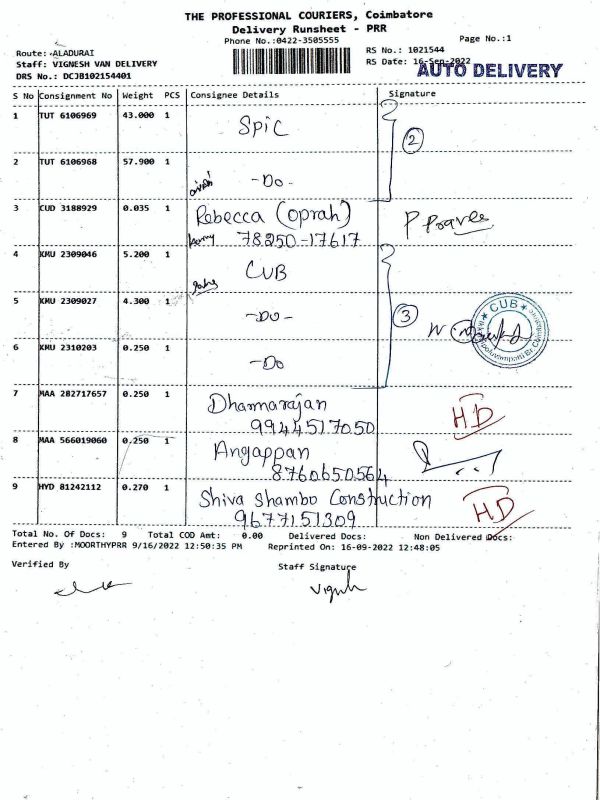 THE PROFESSIONAL COURIERS, Coimbatore
Delivery Runsheet - PRR
Phone No.:0422-3505555
Page No.:1
Route: ALADURAI
RS No.: 1021544
Staff: VIGNESH VAN DELIVERY
RS Date: 16-Sep-2022
AUTO DELIVERY
DRS No.: DCJB102154401
S No Consignment No Weight PCS Consignee Details Signature
1 TUT 6106969 43.000 1 SPIC
2
2 TUT 6106968 57.900 1 -Do-
3 CUD 3188929 0.035 1 Rebecca (oprah)
78250-17617
4 KMU 2309046 5.200 1 CUB
5 KMU 2309027 4.300 1 -Do-
3
CUB
6 KMU 2310203 0.250 1 -Do
7 MAA 282717657 0.250 1 Dharmarajan HD
9944517050
8 MAA 566019060 0.250 1 Angappan
8760650564
9 HYD 81242112 0.270 1 Shiva Shambo Construction HD
9677151309
Total No. Of Docs: 9 Total COD Amt: 0.00 Delivered Docs: Non Delivered Docs:
Entered By :MOORTHYPRR 9/16/2022 12:50:35 PM Reprinted On: 16-09-2022 12:48:05
Verified By Staff Signature